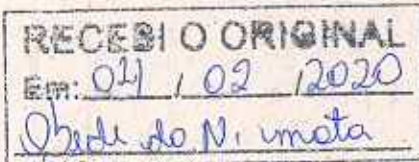 RECEBI O ORIGINAL
Em: 04 / 02 / 2020
do N. mota